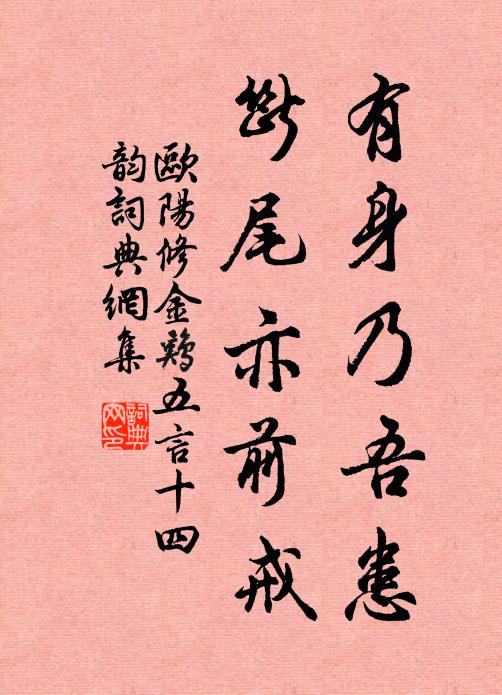 有身乃吾患
斷尾亦前戒
歐陽修金鶏五言十四
韵詞典網集
詞典網印